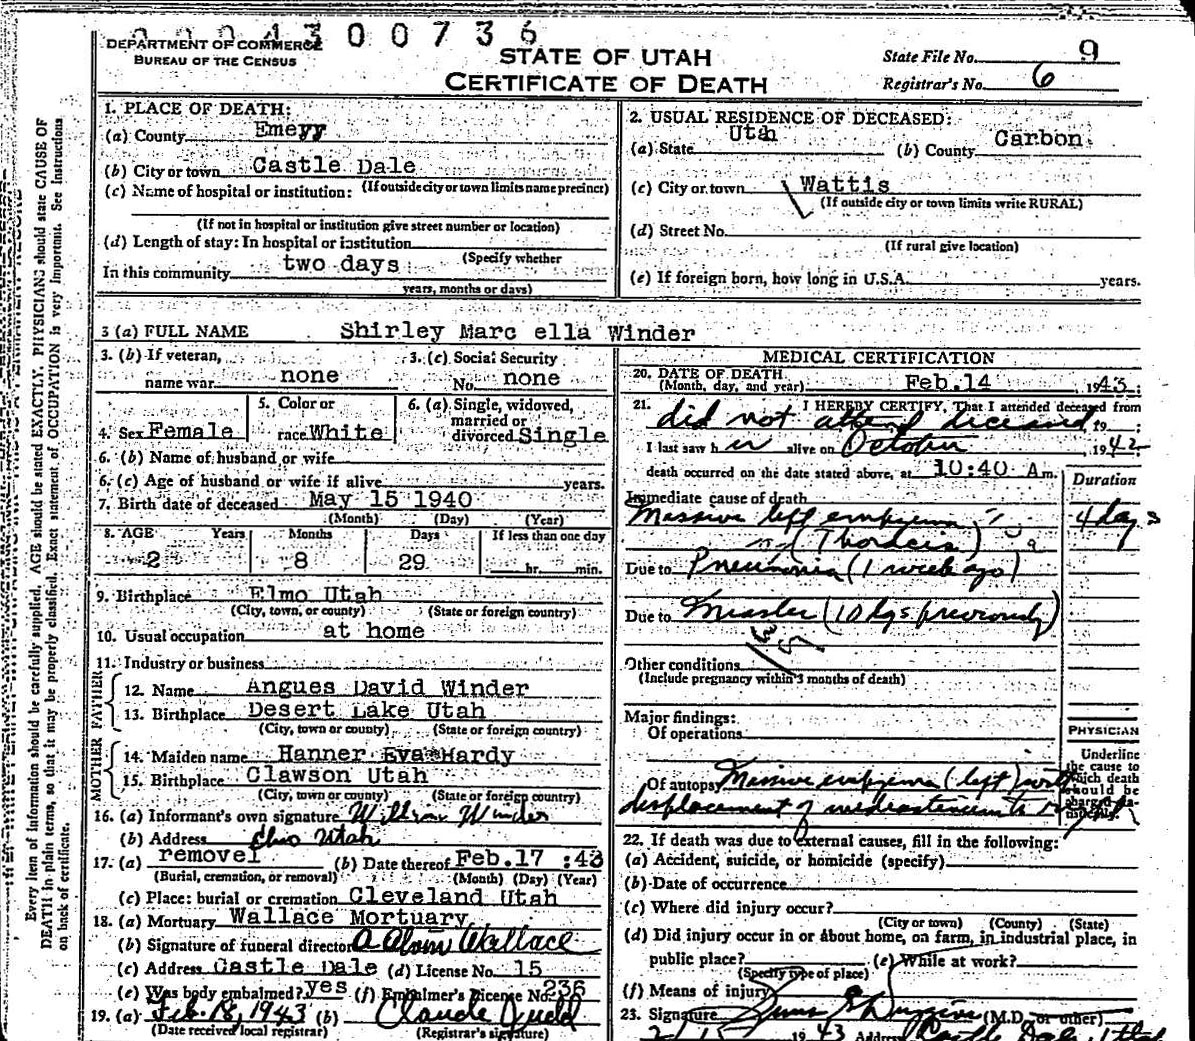 0004300736
DEPARTMENT OF COMMERCE
BUREAU OF THE CENSUS
STATE OF UTAH
CERTIFICATE OF DEATH
State File No. 9
Registrar's No. 6
Every item of information should be carefully supplied. AGE should be stated EXACTLY. PHYSICIANS should state CAUSE OF
DEATH in plain terms, so that it may be properly classified. Exact statement of OCCUPATION is very important. See Instructions
on back of certificate.
1. PLACE OF DEATH:
(a) County Emeyy
(b) City or town Castle Dale
(c) Name of hospital or institution: (If outside city or town limits name precinct)
(If not in hospital or institution give street number or location)
(d) Length of stay: In hospital or institution
(Specify whether
In this community two days
years, months or days)
2. USUAL RESIDENCE OF DECEASED:
(a) State Utah (b) County Carbon
(c) City or town Wattis
(If outside city or town limits write RURAL)
(d) Street No.
(If rural give location)
(e) If foreign born, how long in U.S.A. years.
3 (a) FULL NAME Shirley Marc ella Winder
3. (b) If veteran,
name war none
3. (c) Social Security
No. none
4. Sex Female
5. Color or
race White
6. (a) Single, widowed,
married or
divorced Single
6. (b) Name of husband or wife
6. (c) Age of husband or wife if alive years.
7. Birth date of deceased May 15 1940
(Month) (Day) (Year)
8. AGE Years Months Days If less than one day
2 8 29 hr. min.
9. Birthplace Elmo Utah
(City, town, or county) (State or foreign country)
10. Usual occupation at home
11. Industry or business
FATHER
12. Name Angues David Winder
13. Birthplace Desert Lake Utah
(City, town or county) (State or foreign country)
MOTHER
14. Maiden name Hanner Eva Hardy
15. Birthplace Clawson Utah
(City, town or county) (State or foreign country)
16. (a) Informant's own signature Winder
(b) Address Elmo Utah
17. (a) removel (b) Date thereof Feb.17 :43
(Burial, cremation, or removal) (Month) (Day) (Year)
(c) Place: burial or cremation Cleveland Utah
18. (a) Mortuary Wallace Mortuary
(b) Signature of funeral director Wallace
(c) Address Castle Dale (d) License No. 15
(e) Was body embalmed? yes (f) Embalmer's License No. 236
19. (a) Feb. 18, 1943 (b) Claude Judd
(Date received local registrar) (Registrar's signature)
MEDICAL CERTIFICATION
20. DATE OF DEATH
(Month, day, and year) Feb.14 1943
21. I HEREBY CERTIFY, That I attended deceased from
did not attend deceased to
I last saw her alive on October 1942
death occurred on the date stated above, at 10:40 A m.
Duration
Immediate cause of death
Massive left empyema 4 days
(Thoracis)
Due to Pneumonia (1 week ago)
Due to Measles (10 dys previously)
35
Other conditions
(Include pregnancy within 3 months of death)
Major findings:
Of operations
PHYSICIAN
Underline
the cause to
which death
should be
charged sta-
tistically.
Of autopsy Massive empyema (left) with
displacement of mediastinum to right
22. If death was due to external causes, fill in the following:
(a) Accident, suicide, or homicide (specify)
(b) Date of occurrence
(c) Where did injury occur?
(City or town) (County) (State)
(d) Did injury occur in or about home, on farm, in industrial place, in
public place? (e) While at work?
(Specify type of place)
(f) Means of injury
23. Signature (M.D. or other)
2/15 1943 Address Castle Dale, Utah